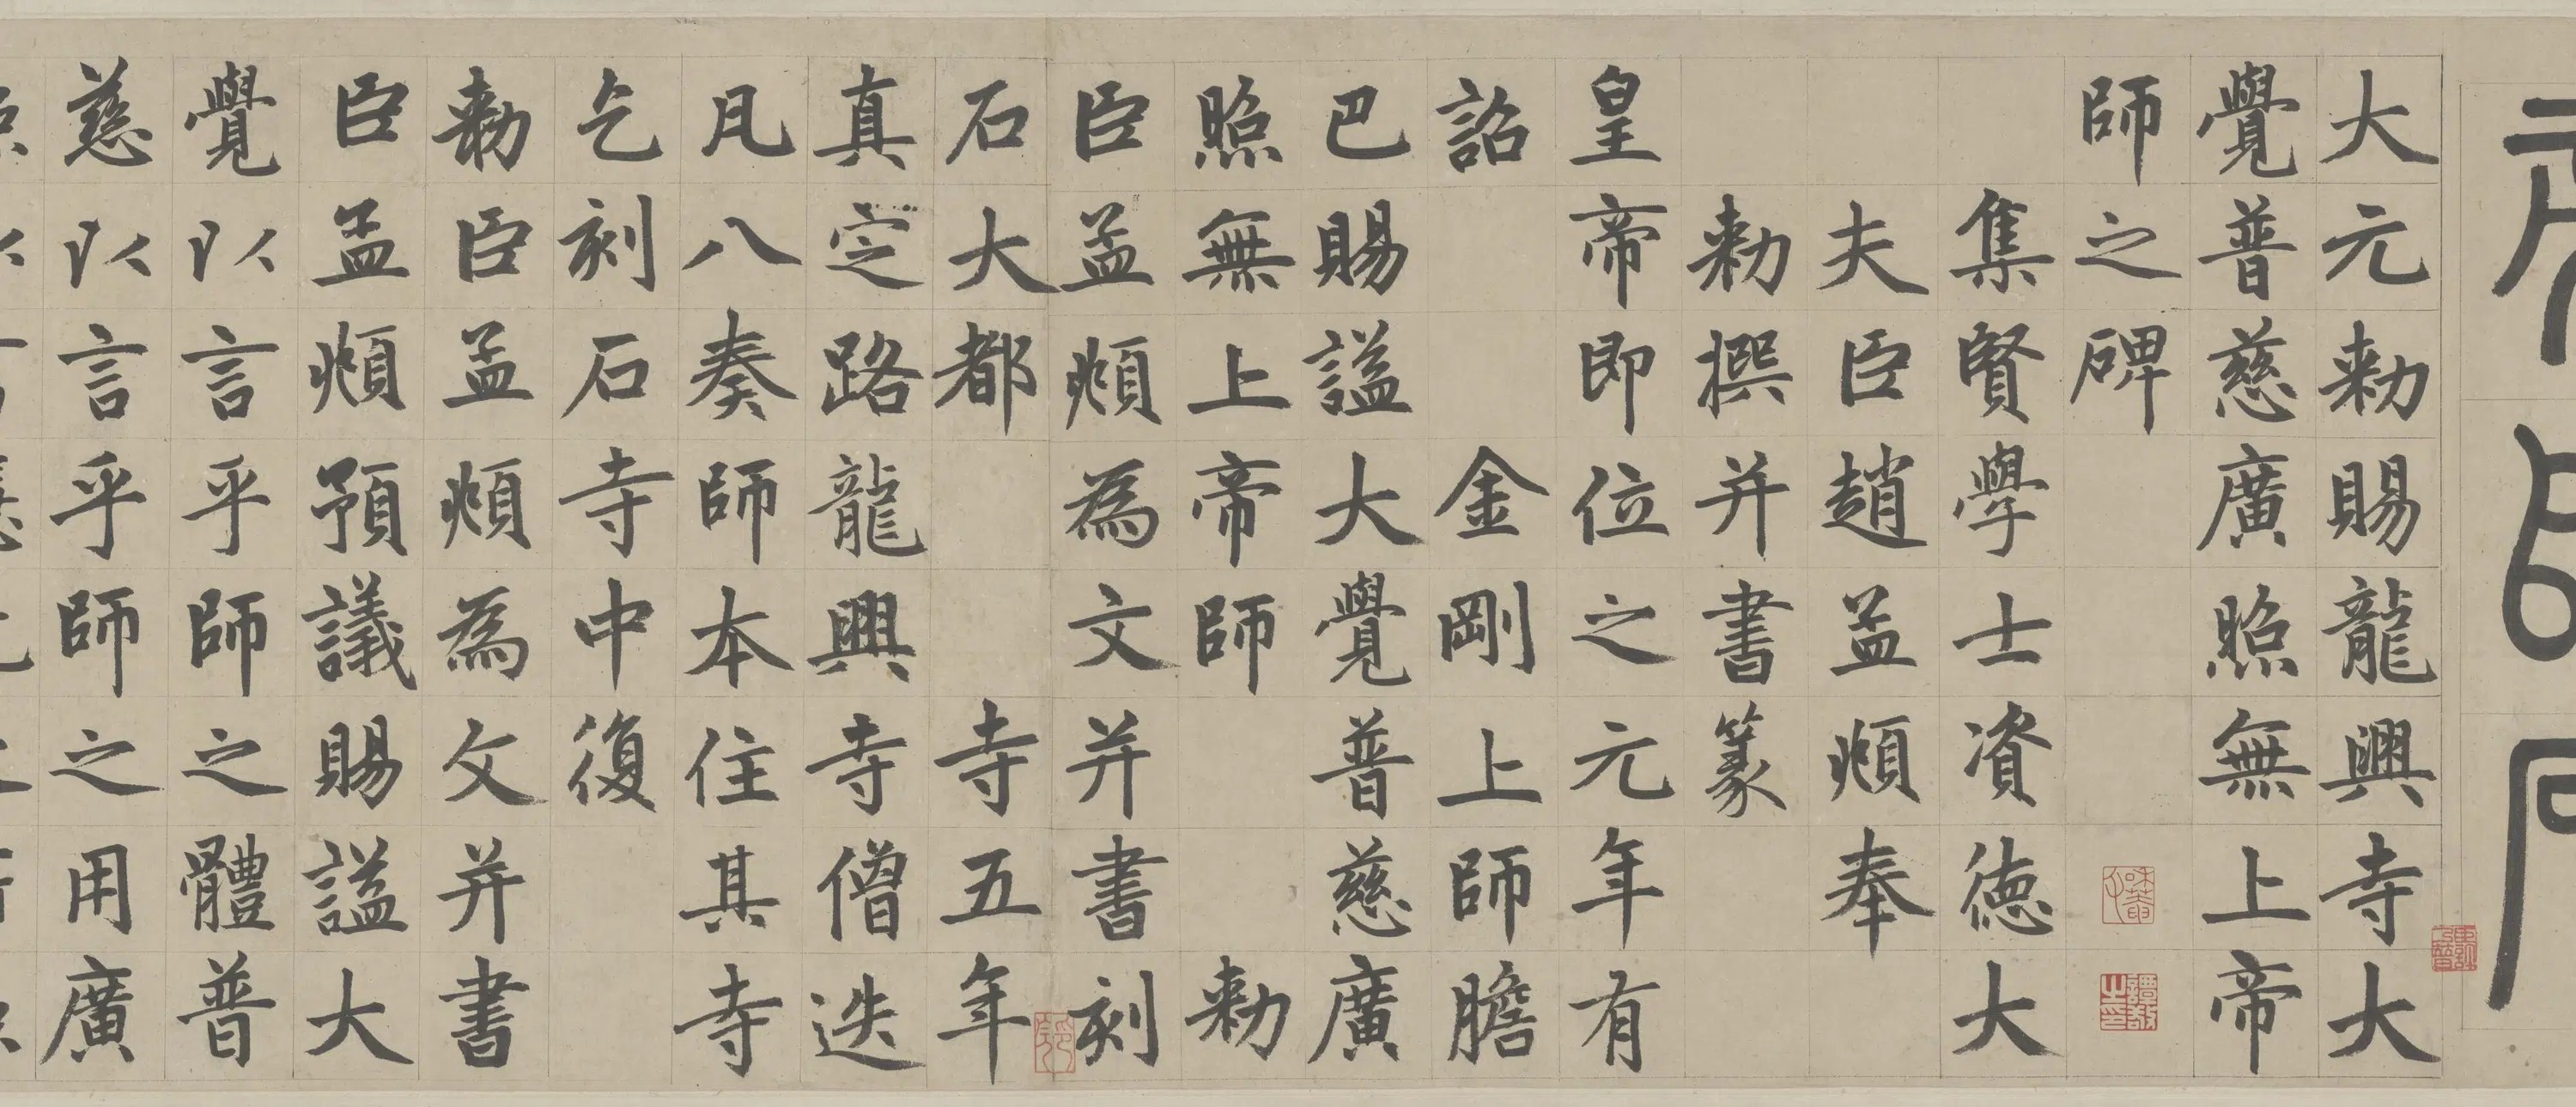 大元敕賜龍興寺大
覺普慈廣照無上帝
師之碑
集賢學士資德大
夫臣趙孟頫奉
敕撰并書篆
皇帝即位之元年有
詔金剛上師膽
巴賜謚大覺普慈廣
照無上帝師敕
臣孟頫為文并書刻
石大都寺五年
真定路龍興寺僧迭
凡八奏師本住其寺
乞刻石寺中復
敕臣孟頫為文并書
臣孟頫預議賜謚大
覺以言乎師之體普
慈以言乎師之用廣